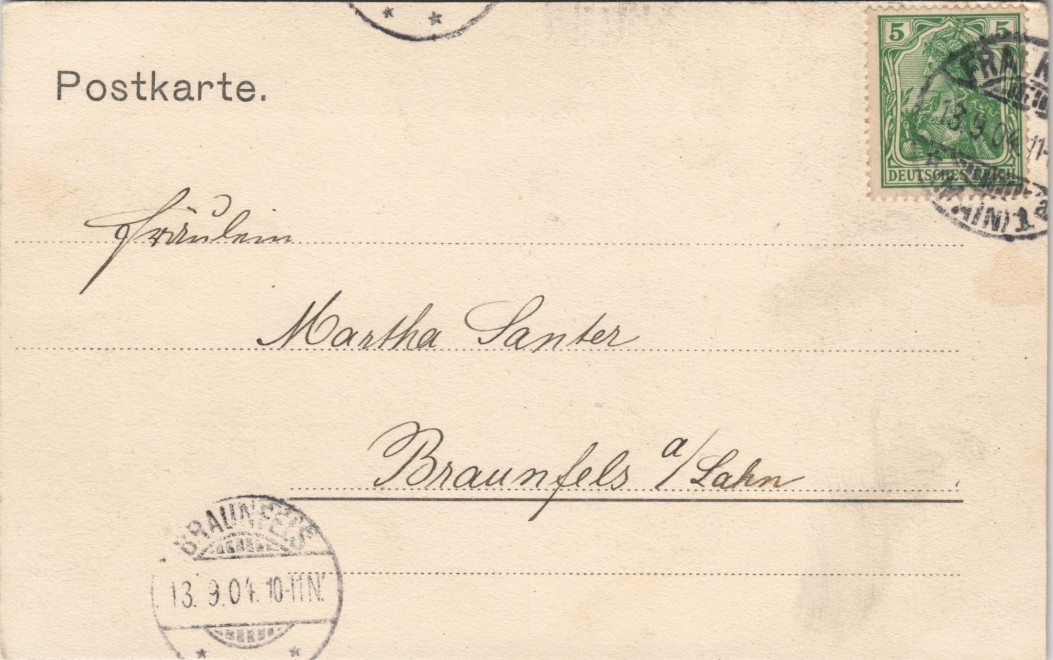 Postkarte.
5 5
DEUTSCHES
13.9.04. 11-
(MAIN) 1
Fräulein
Martha Santer
Braunfels a/Lahn
BRAUNFELS
13. 9. 04. 10-11 N.